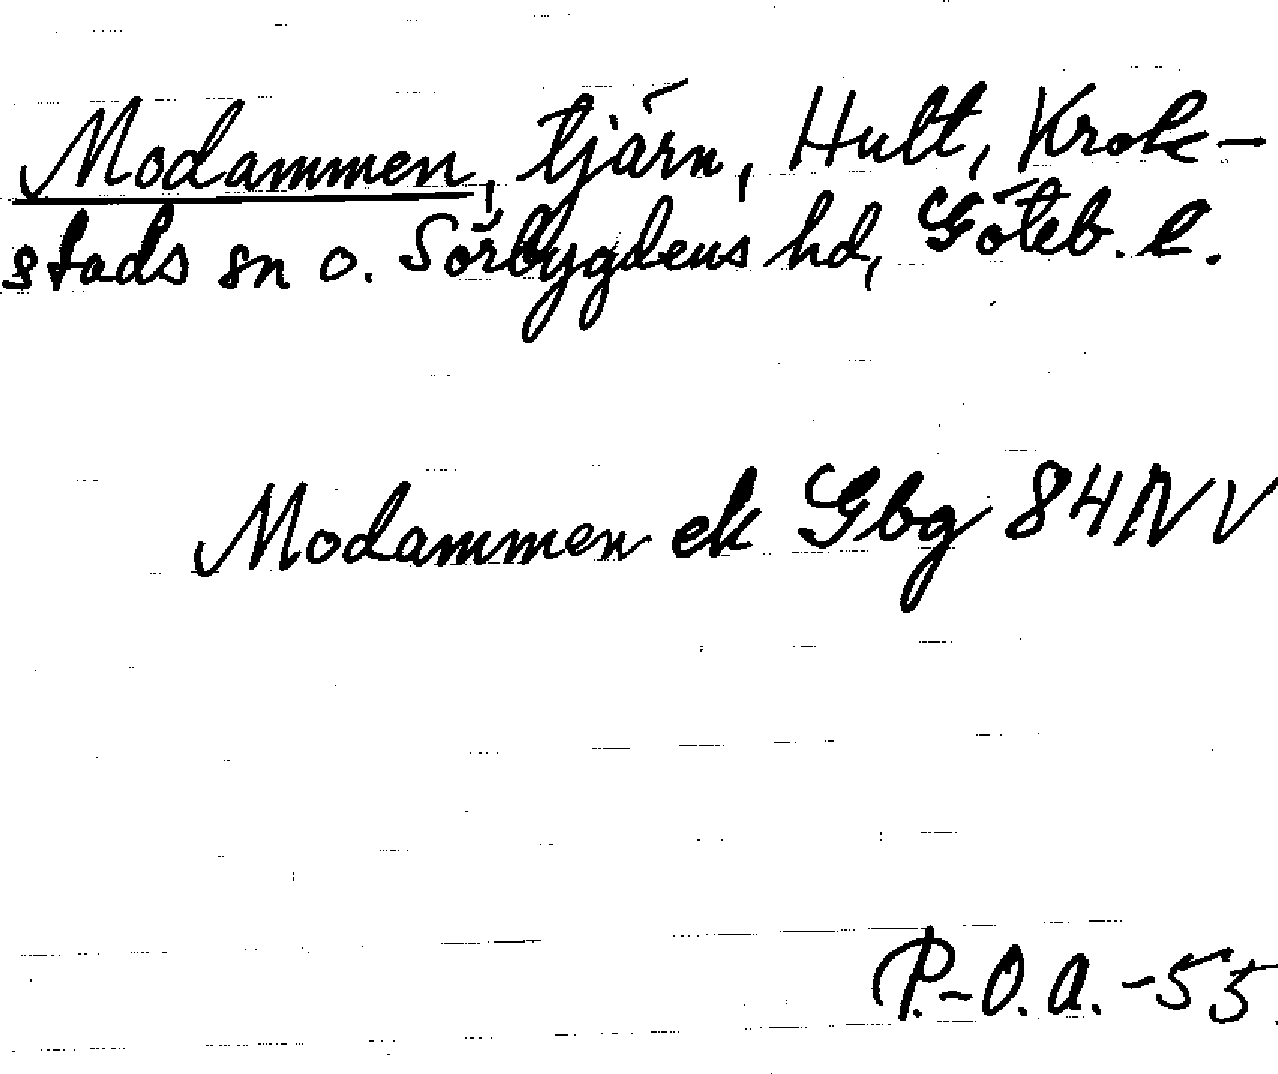 Modammen, tjärn, Hult, Krok-
stads sn o. Sörbygdens hd, Göteb. l.
Modammen ek Gbg 84 NV
P.-O. A. -55